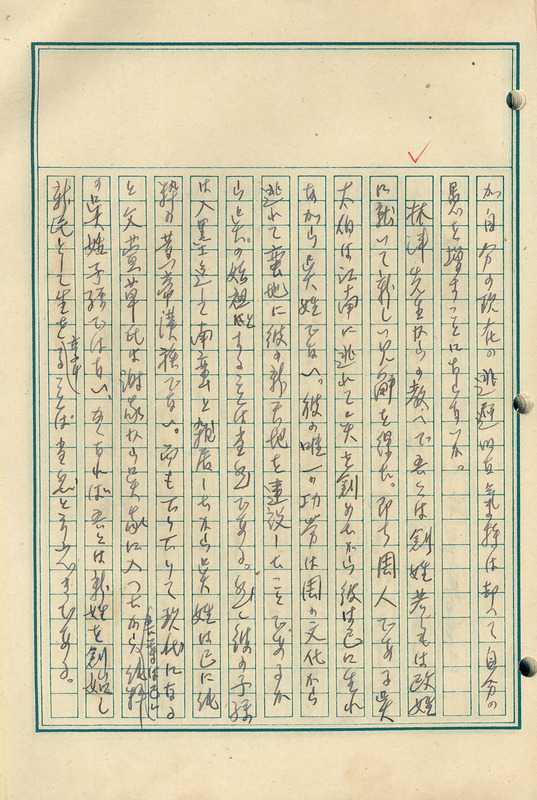 が自分の現在の逃避的な気持は却って自分の
愚を増すことになるまいか。
林津先生からの教へで吾々は創姓若しくは改姓
に就いて新しい見解を得た。即ち周人である呉
太伯は江南に逃れて呉を創めたから彼は已に生れ
ながら呉姓でない。彼の唯一の功労は周の文化から
逃れて蛮地に彼の新天地を建設したことであるか
ら呉の始祖とすることは当然である。然し彼の子孫
は入墨迄して南蛮と雑居したから呉姓は已に純
粋の黄帝漢族でない。而も下り下りて現代になる
と文萱草氏は謝家から呉家に入ったから純粋
の呉姓子孫ではない、してみれば吾々は新姓を創始し
新氏として生を享けることは当然と云ふべきである。